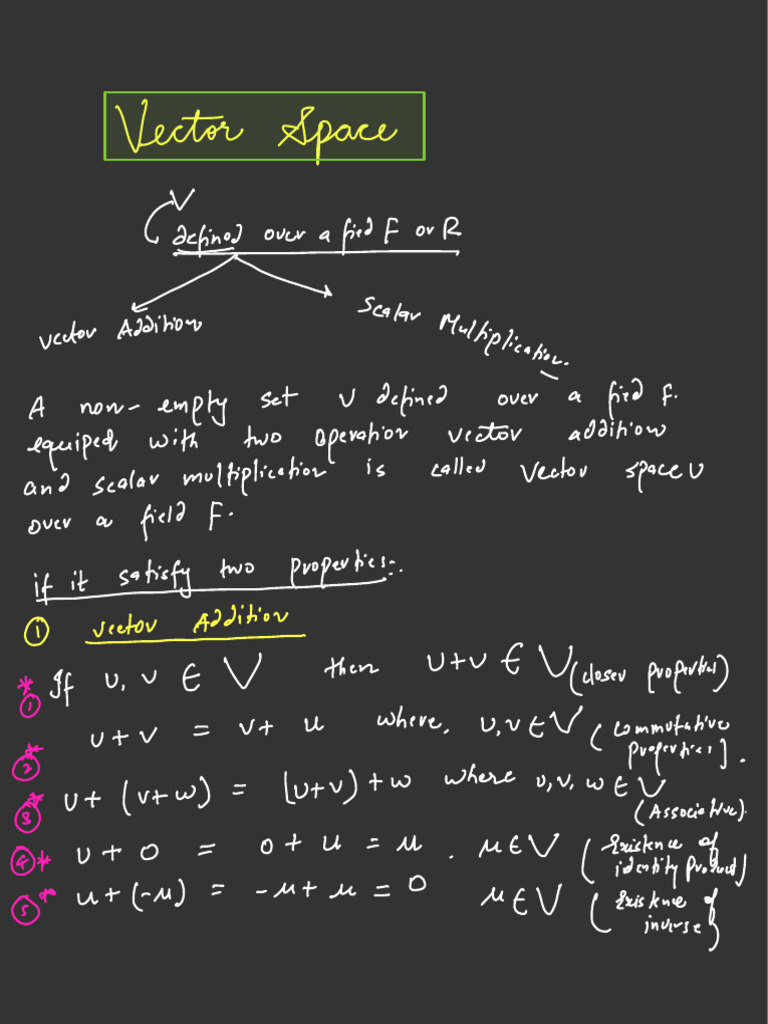 Vector Space
V
defined over a fied F or R
vector Addition
Scalar Multiplication.
A non-empty set V defined over a fied F.
equiped with two operation vector addition
and scalar multiplication is called vector space V
over a field F.
if it satisfy two properties:-
① vector Addition
* ① If u, v ∈ V then u+v ∈ V (closer properties)
* ② u + v = v + u where, u, v ∈ V (commutative properties).
* ③ u + (v+w) = (u+v) + w where u, v, w ∈ V (Associative).
④ * u + 0 = 0 + u = u . u ∈ V (Existence of identity)
⑤ * u + (-u) = -u + u = 0 u ∈ V (Existence of inverse)